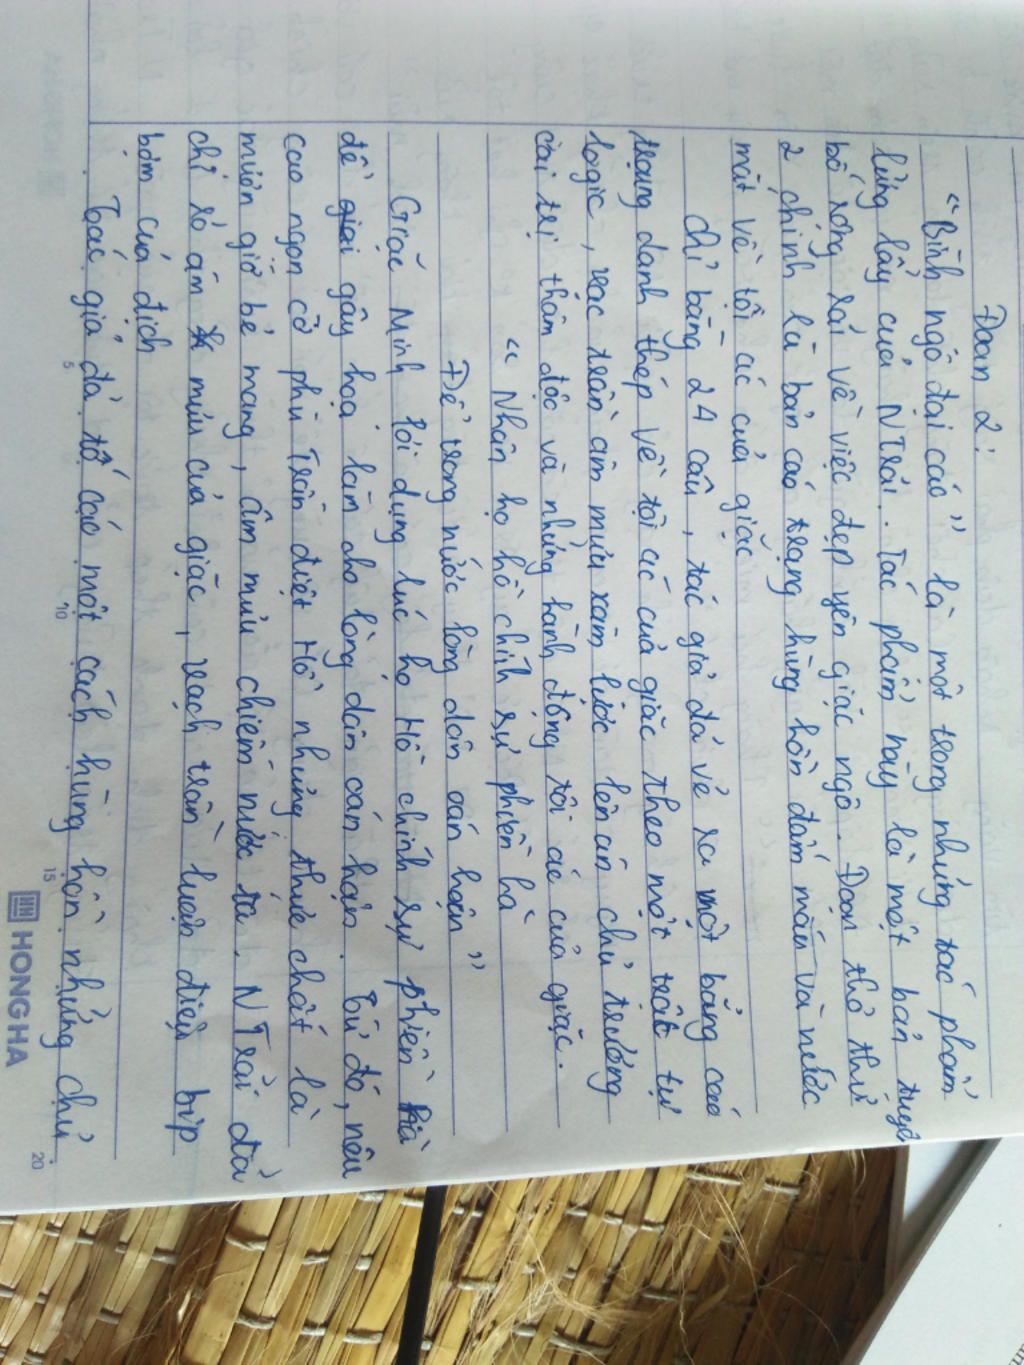 Đoạn 2:
"Bình ngô đại cáo" là một trong những tác phẩm
lừng lẫy của N Trãi. Tác phẩm này là một bản tuyên
bố rộng rãi về việc dẹp yên giặc ngô. Đoạn thơ thứ
2 chính là bản cáo trạng hùng hồn đẫm máu và nước
mắt về tội ác của giặc
Chỉ bằng 24 câu, tác giả đã vẽ ra một bảng cáo
trạng danh thép về tội ác của giặc theo một trật tự
logic, vạc trần âm mưu xâm lược lên án chủ trương
cài trị thâm độc và những hành động tội ác của giặc.
" Nhân họ hồ chính sự phiền hà
Để trong nước lòng dân oán hận "
Giặc Minh lợi dụng lúc họ Hồ chính sự phiền hà
để gây hoạ làm cho lòng dân oán hận. Từ đó, nêu
cao ngọn cờ phù Trần diệt Hồ nhưng thực chất là
muốn giở bẻ mang, âm mưu chiếm nước ta. N Trãi đã
chỉ rõ âm mưu của giặc, vạch trần luận điệu bịp
bợm của địch
Tác giả đã tố cáo một cách hùng hồn những chủ
5
10
15
20
HONG HA